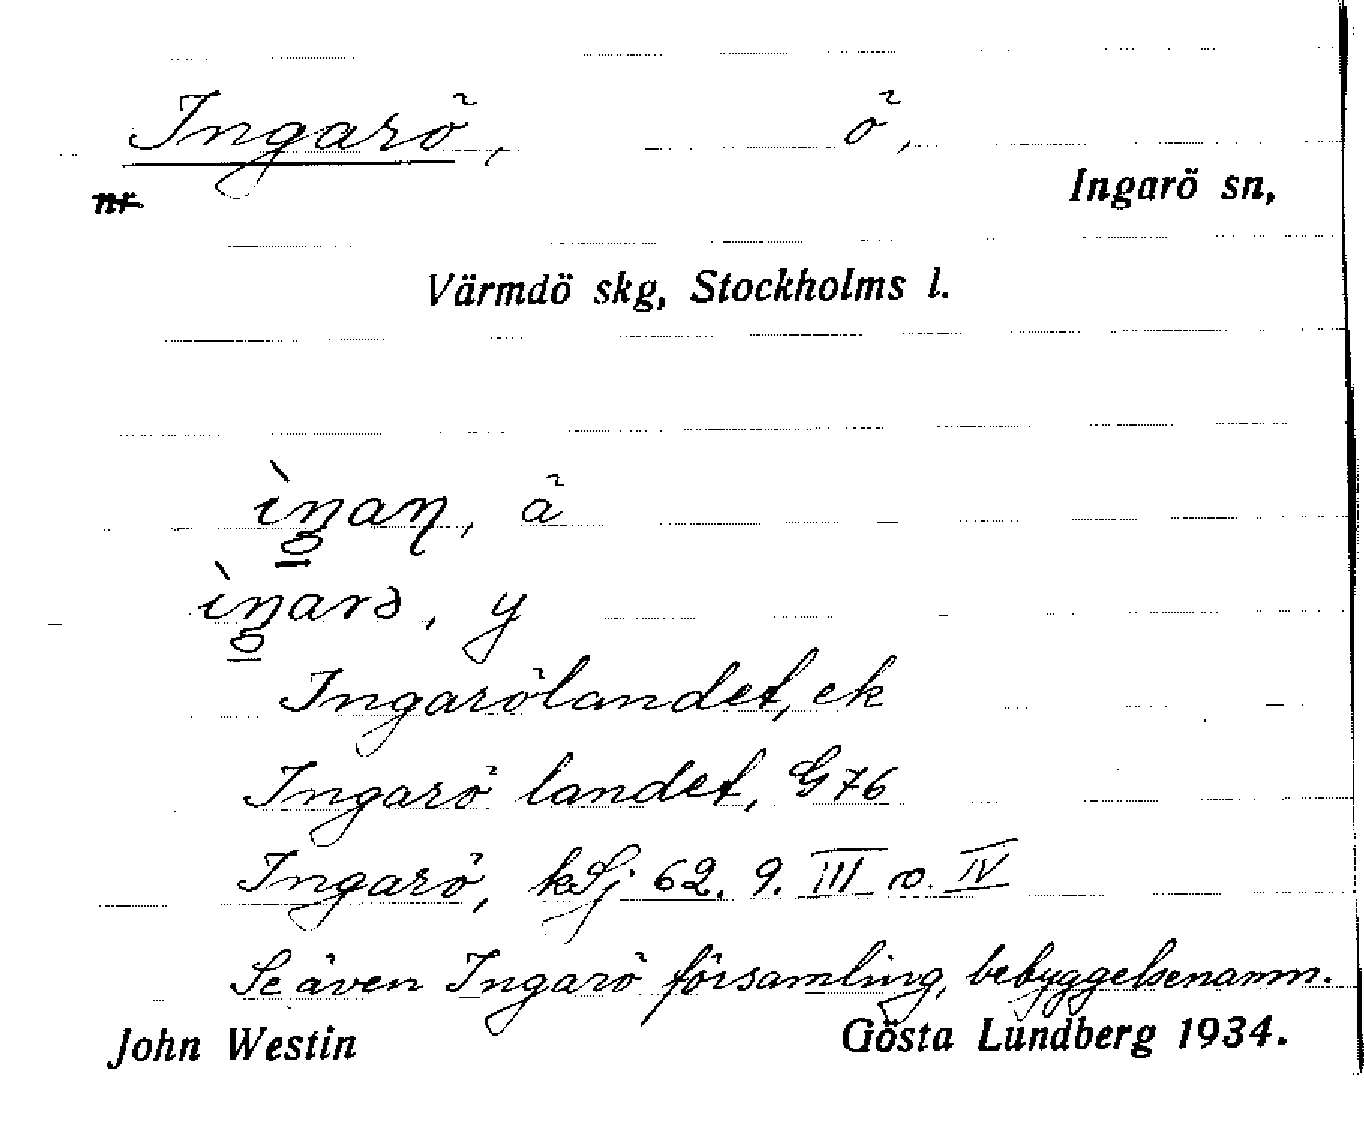 Ingarö, ö,
nr
Ingarö sn,
Värmdö skg, Stockholms l.
ä
y
Ingarölandet, ek
Ingarö landet, G 76
Ingarö, kSj 62. 9. III o. IV
Se även Ingarö församling, bebyggelsenamn.
John Westin Gösta Lundberg 1934.